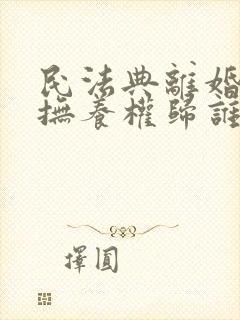 民法典離婚
撫養權歸誰
擇圓